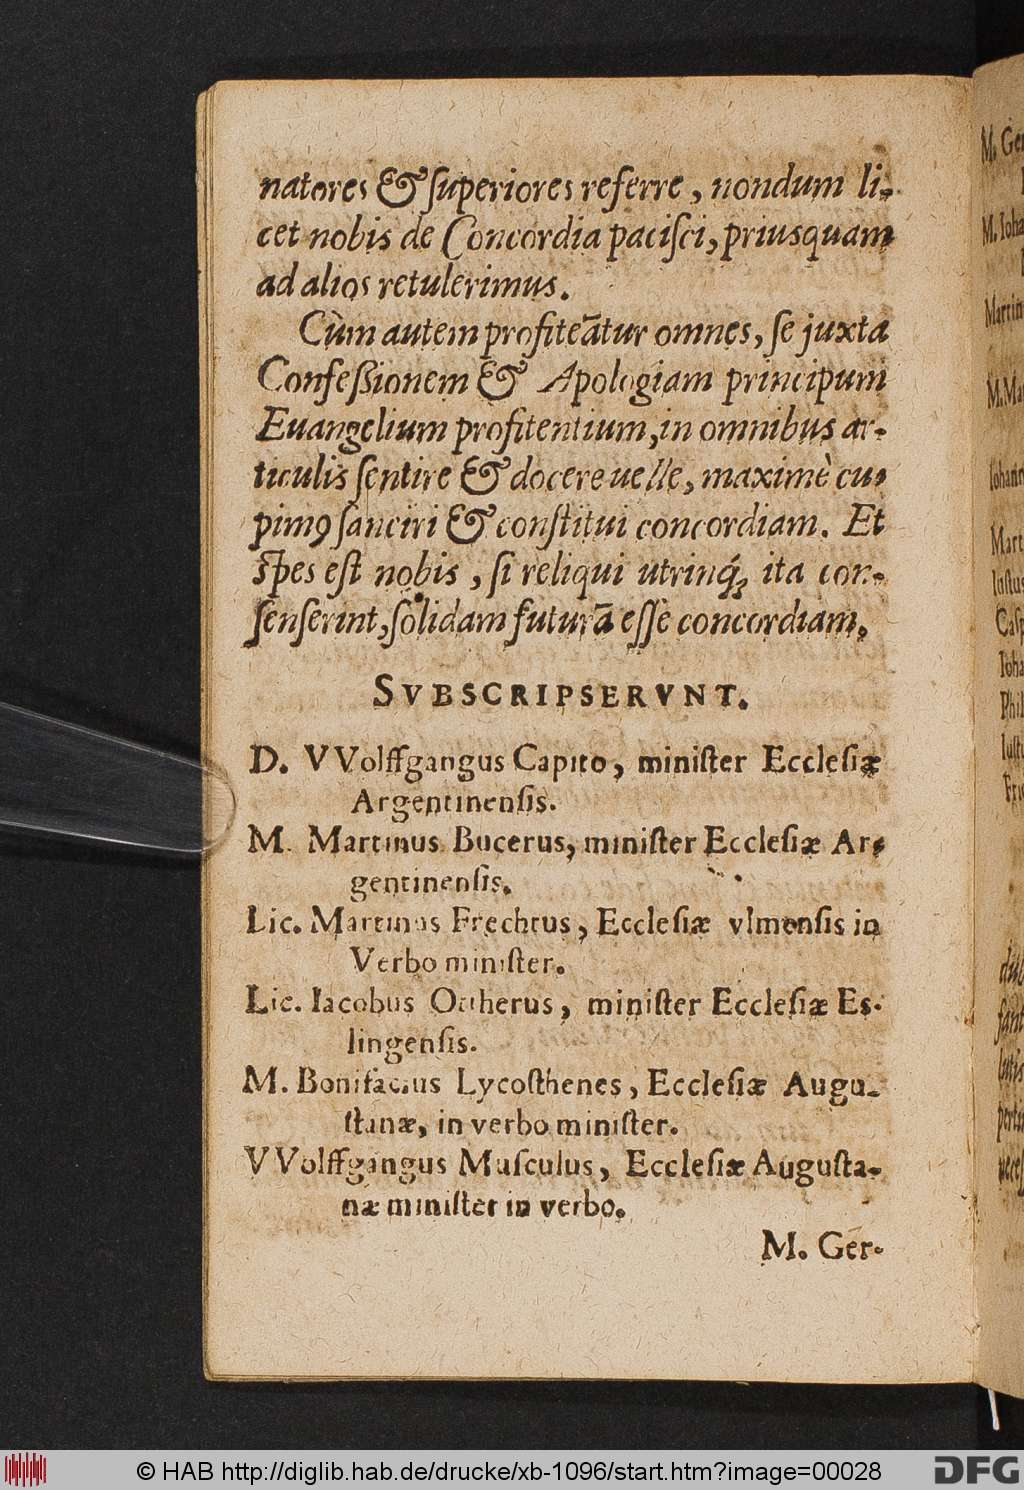 natores & superiores referre, nondum li-
cet nobis de Concordia pacisci, priusquam
ad alios retulerimus.
Cùm autem profiteātur omnes, se juxta
Confeßionem & Apologiam principum
Euangelium profitentium, in omnibus ar-
ticulis sentire & docere uelle, maximè cu-
pimꝰ sanciri & constitui concordiam. Et
spes est nobis, si reliqui utrinq́; ita con-
senserint, solidam futurā esse concordiam.
SVBSCRIPSERVNT.
D. VVolffgangus Capito, minister Ecclesiæ
Argentinensis.
M. Martinus Bucerus, minister Ecclesiæ Ar-
gentinensis.
Lic. Martinus Frechtus, Ecclesiæ vlmensis in
Verbo minister.
Lic. Iacobus Ottherus, minister Ecclesiæ Es-
lingensis.
M. Bonifacius Lycosthenes, Ecclesiæ Augu-
stanæ, in verbo minister.
VVolffgangus Musculus, Ecclesiæ Augusta-
næ minister in verbo.
M. Ger-
M. Ger
M. Ioha
Martin
Mart
Iustus
Casp
Ioha
Phil
Iust
Fri
© HAB http://diglib.hab.de/drucke/xb-1096/start.htm?image=00028
DFG